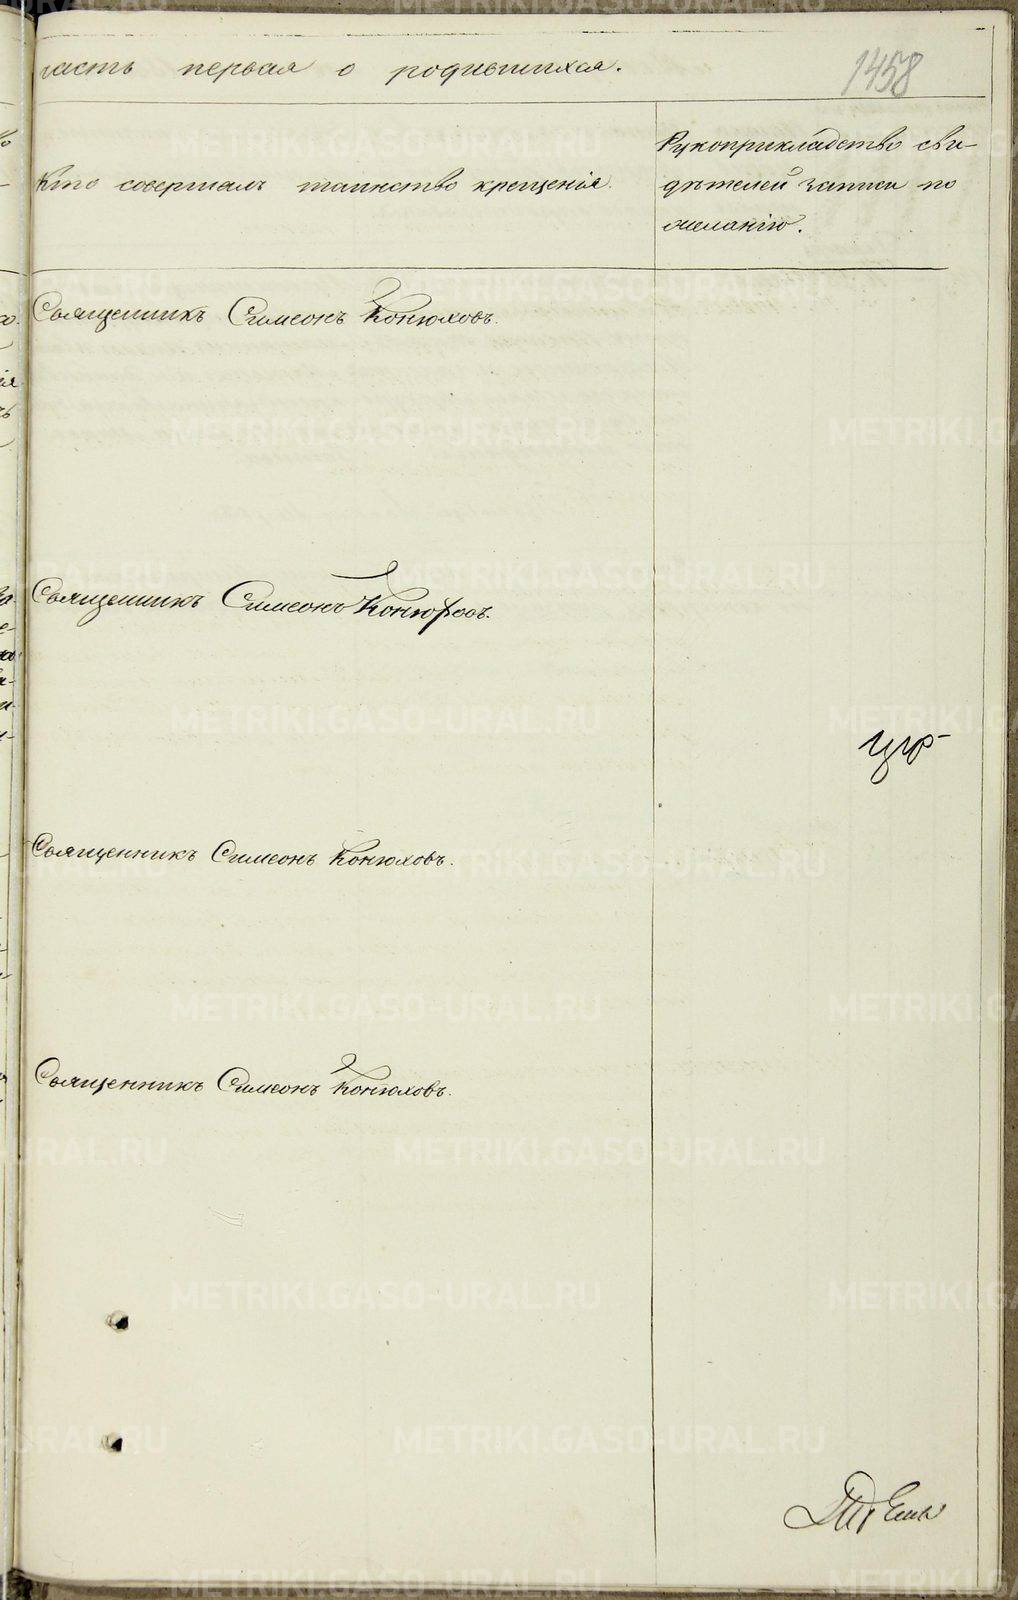 часть первая о родившихся.
1458
Кто совершалъ таинство крещенія.
Рукоприкладство сви-
дѣтелей записи по
желанію.
Священникъ Симеонъ Конюховъ.
Священникъ Симеонъ Конюховъ.
Священникъ Симеонъ Конюховъ.
Священникъ Симеонъ Конюховъ.
METRIKI.GASO-URAL.RU